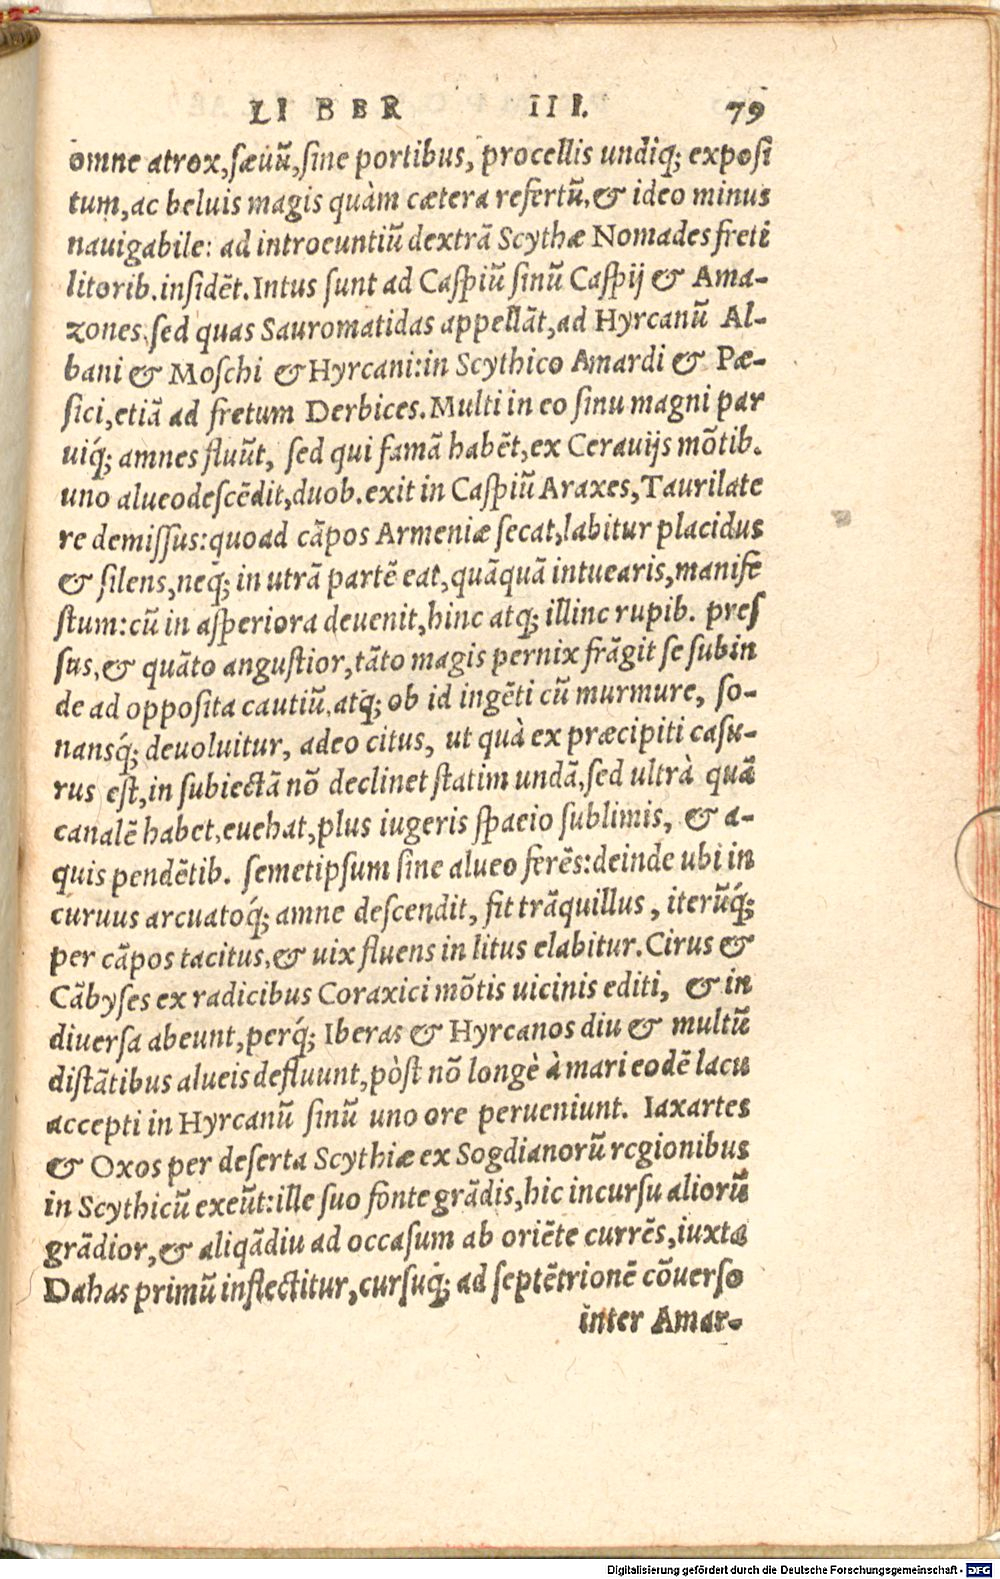 LIBER III. 79
omne atrox, sæuũ, sine portibus, procellis undiq; exposi
tum, ac beluis magis quàm cætera refertũ, & ideo minus
nauigabile: ad introeuntiũ dextrã Scythæ Nomades freti
litorib. insidẽt. Intus sunt ad Caspiũ sinũ Caspij & Ama-
zones, sed quas Sauromatidas appellãt, ad Hyrcanũ Al-
bani & Moschi & Hyrcani: in Scythico Amardi & Pæ-
sici, etiã ad fretum Derbices. Multi in eo sinu magni par
uiq́; amnes fluũt, sed qui famã habẽt, ex Cerauijs mõtib.
uno alueo descẽdit, duob. exit in Caspiũ Araxes, Tauri late
re demissus: quoad cãpos Armeniæ secat, labitur placidus
& silens, neq́; in utrã partẽ eat, quãquã intuearis, manife
stum: cũ in asperiora deuenit, hinc atq; illinc rupib. pres
sus, & quãto angustior, tãto magis pernix frãgit se subin
de ad opposita cautiũ, atq́; ob id ingẽti cũ murmure, so-
nansq́; deuoluitur, adeo citus, ut quà ex præcipiti casu-
rus est, in subiectã nõ declinet statim undã, sed ultrà quã
canalẽ habet, euehat, plus iugeris spacio sublimis, & a-
quis pendẽtib. semetipsum sine alueo ferẽs: deinde ubi in
curuus arcuatoq́; amne descendit, fit trãquillus, iterũq́;
per cãpos tacitus, & uix fluens in litus elabitur. Cirus &
Cãbyses ex radicibus Coraxici mõtis uicinis editi, & in
diuersa abeunt, perq́; Iberas & Hyrcanos diu & multũ
distãtibus alueis defluunt, pòst nõ longè à mari eodẽ lacu
accepti in Hyrcanũ sinũ uno ore perueniunt. Iaxartes
& Oxos per deserta Scythiæ ex Sogdianorũ rcgionibus
in Scythicũ exeũt: ille suo fonte grãdis, hic incursu aliorũ
grãdior, & aliqãdiu ad occasum ab oriẽte currẽs, iuxta
Dahas primũ inflectitur, cursuq́; ad septẽtrionẽ cõuerso
inter Amar-
Digitalisierung gefördert durch die Deutsche Forschungsgemeinschaft - DFG